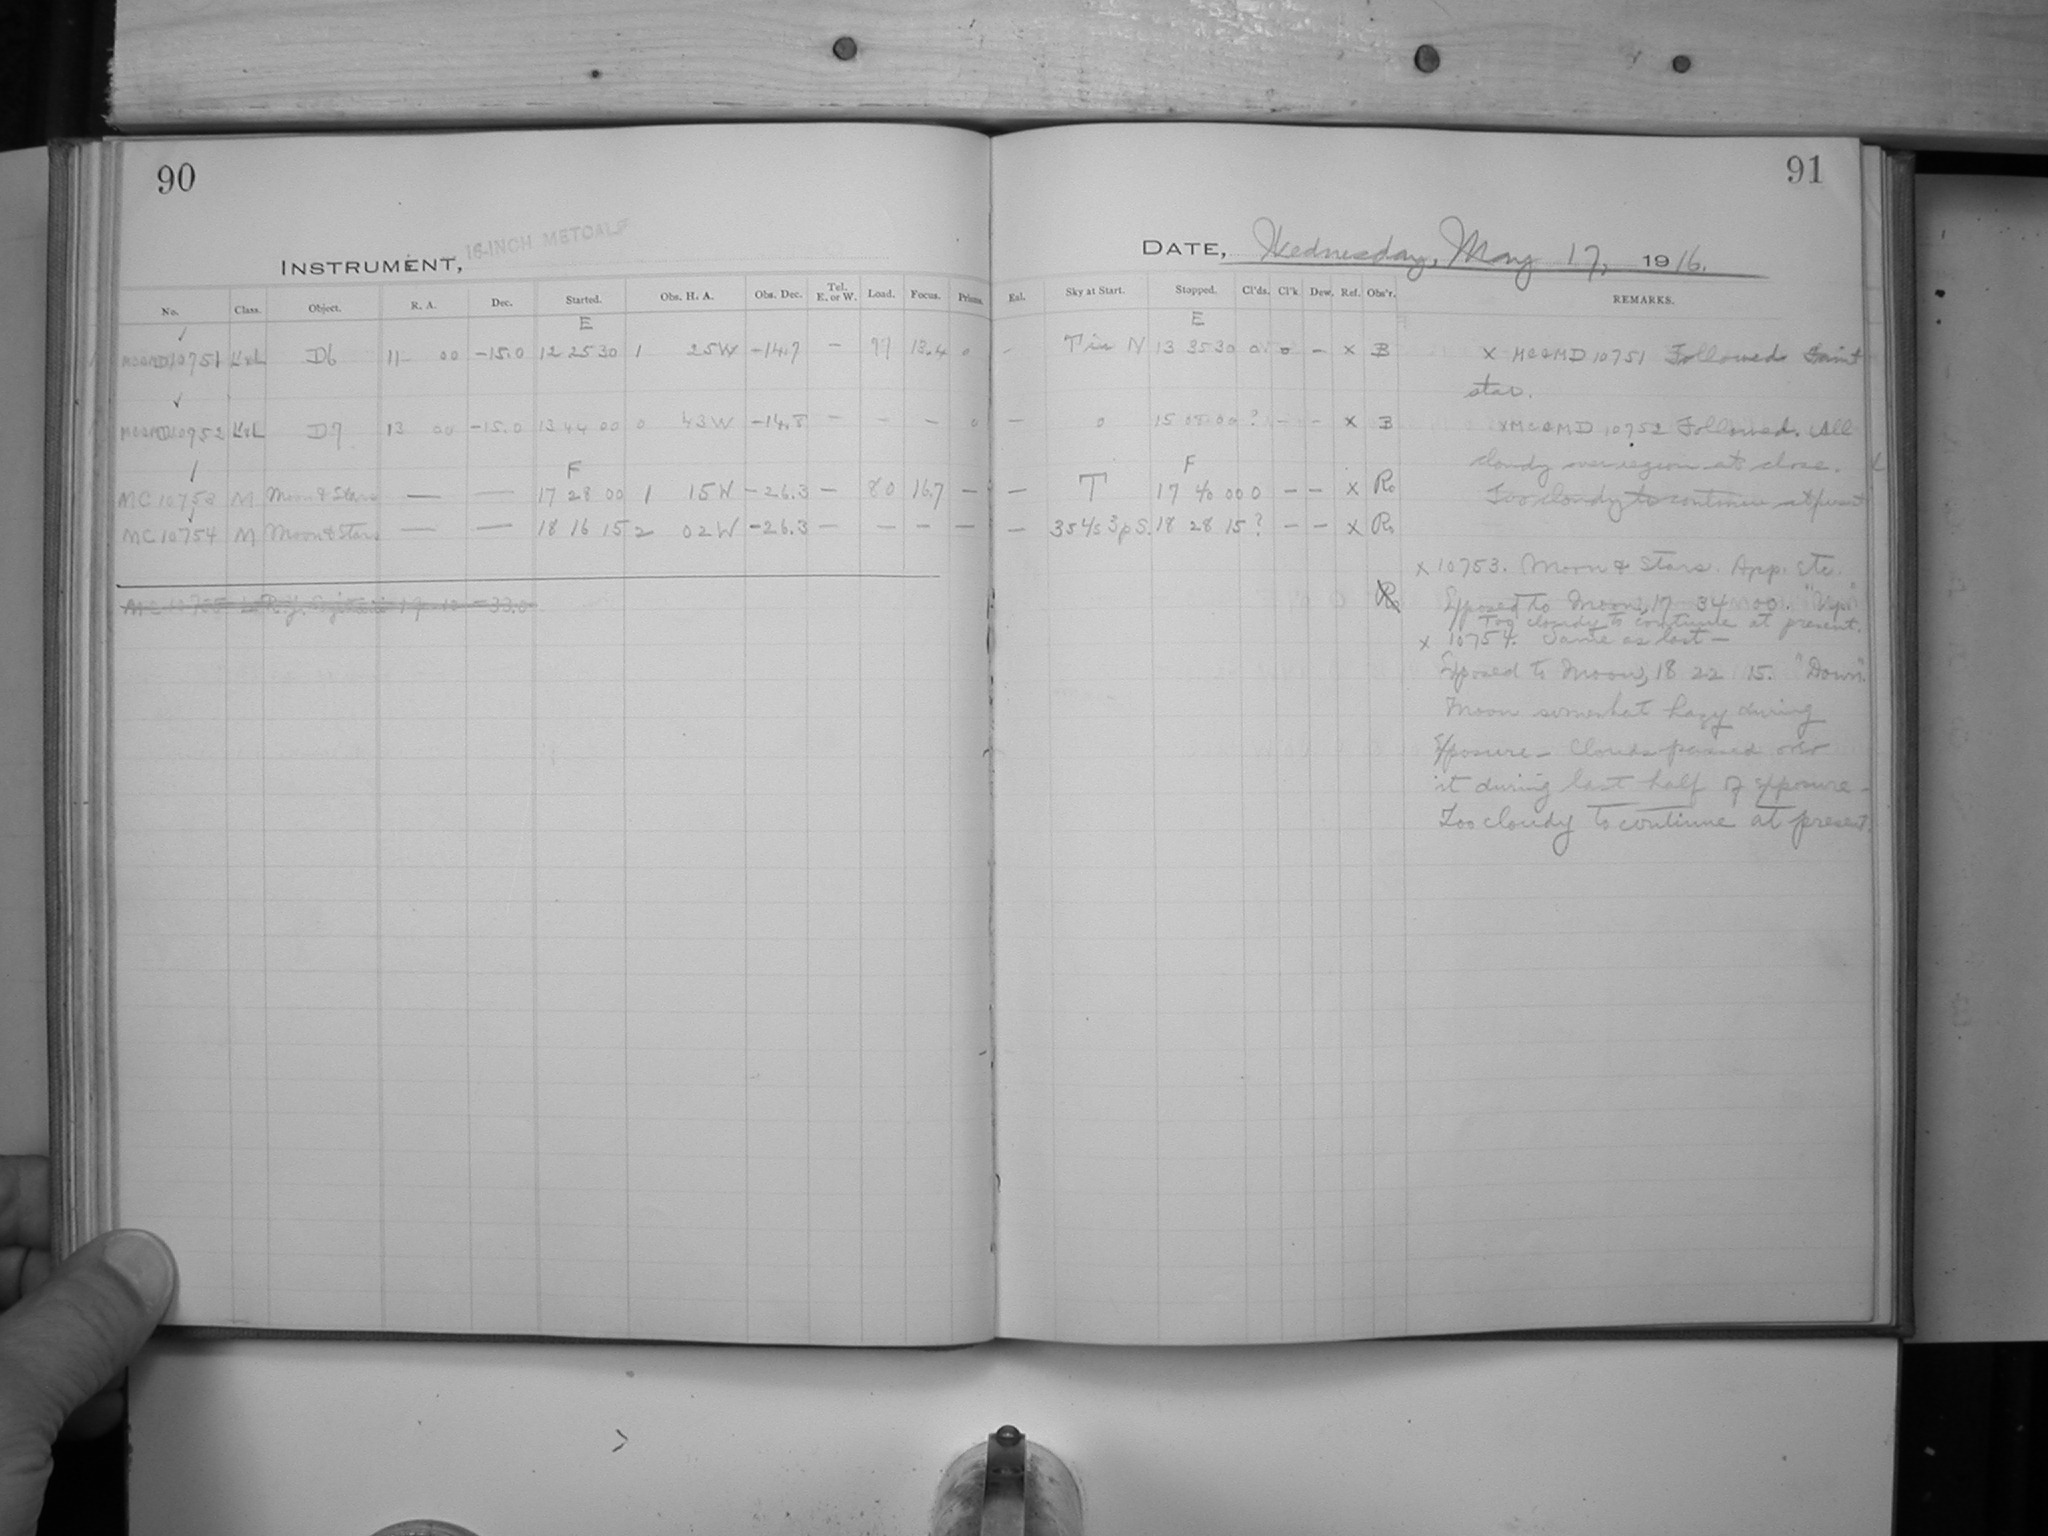 90
91
16-INCH METCALF
INSTRUMENT,
DATE, Wednesday, May 17, 1916.
No. Class. Object. R. A. Dec. Started. Obs. H. A. Obs. Dec. Tel. E. or W. Load. Focus. Prisms. Eal. Sky at Start. Stopped. Cl'ds. Cl'k Dew. Ref. Obs'r. REMARKS.
E E
10751 D6 11 00 -15.0 12 25 30 1 25W -14.7 — 13.4 0 - T in N 13 35 30 0 - x B x 10751 Followed faint
star.
10752 D7 13 00 -15.0 13 44 00 0 43W -14.8 — - — 0 — 0 15 08 00 ? - - x B x 10752 Followed. All
cloudy over region at close.
F F
MC 10753 M Moon & Stars — — 17 28 00 1 15W -26.3 — 80 16.7 — — T 17 40 00 0 - - x Ro Too cloudy to continue at present
MC 10754 M Moon & Stars — — 18 16 15 2 02W -26.3 — — — — — 18 28 15 ? - - x Ro
x 10753. Moon & Stars. App. etc.
Exposed to Moon, 17 34 00. "Up"
Too cloudy to continue at present.
x 10754. Same as last —
Exposed to Moon, 18 22 15. "Down".
Moon somewhat hazy during
exposure — Clouds passed over
it during last half of exposure —
Too cloudy to continue at present.